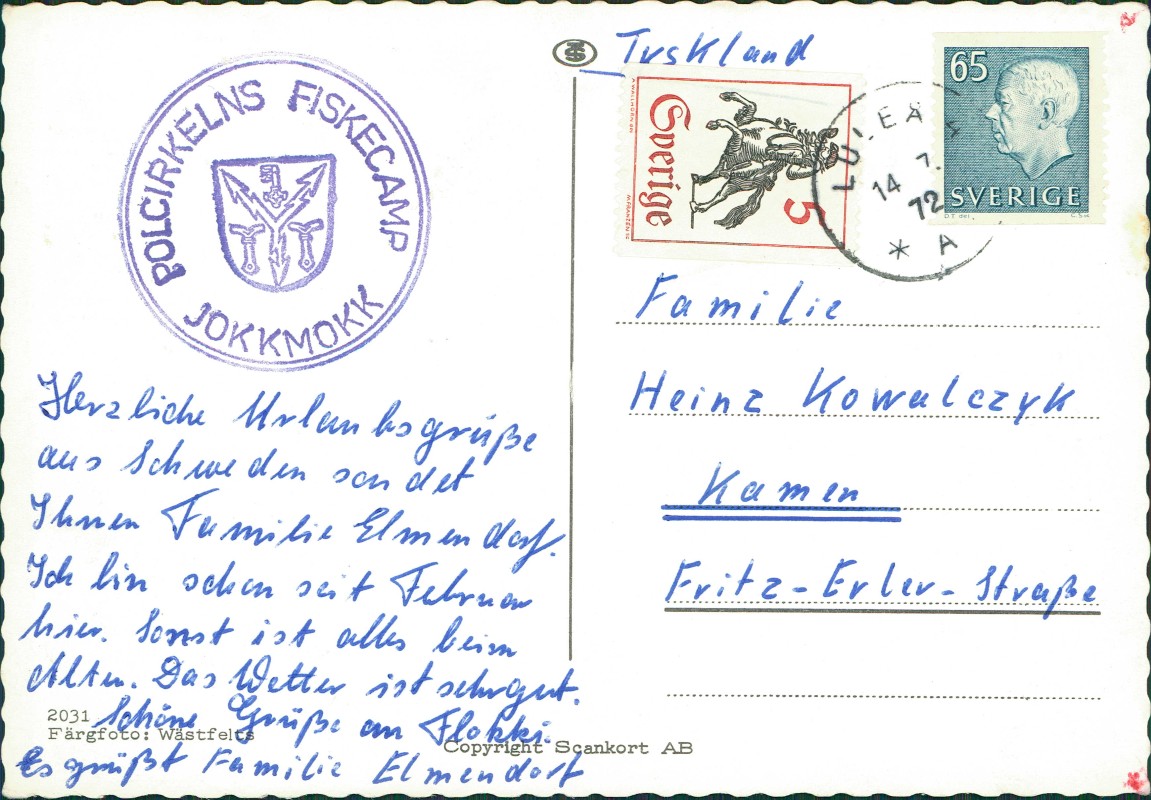 POLCIRKELNS FISKECAMP
JOKKMOKK
Tyskland
Sverige
5
65
SVERIGE
LULEÅ
14 7.
72
* A
Herzliche Urlaubsgrüße
aus Schweden sendet
Ihnen Familie Elmendorf.
Ich bin schon seit Februar
hier. Sonst ist alles beim
Alten. Das Wetter ist sehr gut.
Schöne Grüße an Flokki.
Es grüßt Familie Elmendorf
Familie
Heinz Kowalczyk
Kamen
Fritz-Erler-Straße
2031
Färgfoto: Wästfelts
Copyright Scankort AB